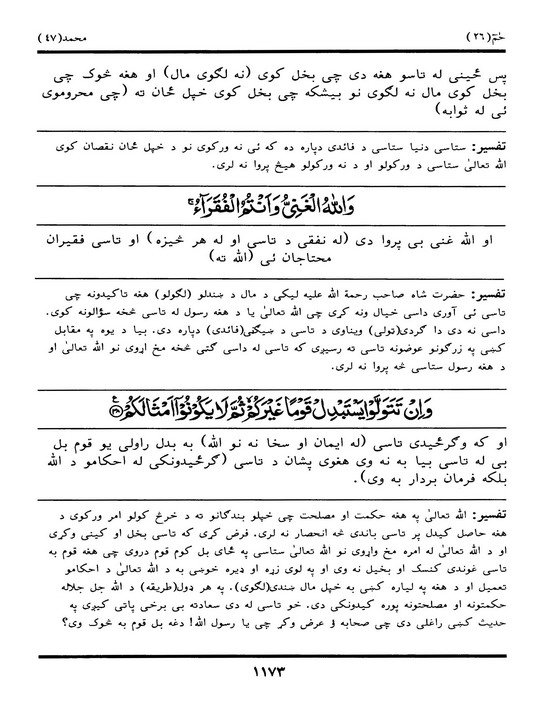 حٰمٓ(۲۶) محمد(۴۷)
پس ځينې له تاسو هغه دی چی بخل کوی (نه لګوی مال) او هغه څوک چی
بخل کوی مال نه لګوی نو بيشکه چی بخل کوی خپل ځان ته (چی محروموی
ئی له ثوابه)
تفسير: ستاسی دنيا ستاسی د فائدی دپاره ده که ئی نه ورکوی نو د خپل ځان نقصان کوی
الله تعالیٰ ستاسی د ورکولو او د نه ورکولو هيڅ پروا نه لری.
وَاللّٰهُ الْغَنِیُّ وَاَنْتُمُ الْفُقَرَآءُ ۚ
او الله غنی بی پروا دی (له نفقی د تاسی او له هر څيزه) او تاسی فقيران
محتاجان ئی (الله ته)
تفسير: حضرت شاه صاحب رحمة الله عليه ليکی د مال د ښندلو (لګولو) هغه تاکيدونه چی
تاسی ئی آوری داسی خيال ونه کړی چی الله تعالیٰ يا د هغه رسول له تاسی څخه سؤالونه کوی.
داسی نه دی دا ګردی(ټولی) ويناوی د تاسی د ښيګڼی(فائدی) دپاره دی. بيا د يوه په مقابل
کښی په زرګونو عوضونه تاسی ته رسيږی که تاسی له داسی ګټی څخه مخ اړوی نو الله تعالیٰ او
د هغه رسول ستاسی څه پروا نه لری.
وَاِنْ تَتَوَلَّوْا يَسْتَبْدِلْ قَوْمًا غَيْرَكُمْ ۙ ثُمَّ لَا يَكُوْنُوْٓا اَمْثَالَكُمْ ﴿۳۸﴾
او که وګرځيدی تاسی (له ايمان او سخا نه نو الله) به بدل راولی يو قوم بل
بی له تاسی بيا به نه وی هغوی پشان د تاسی (ګرځيدونکی له احکامو د الله
بلکه فرمان بردار به وی).
تفسير: الله تعالیٰ په هغه حکمت او مصلحت چی خپلو بندګانو ته د خرڅ کولو امر ورکوی د
هغه حاصل کيدل پر تاسی باندی څه انحصار نه لری. فرض کړی که تاسی بخل او کينی وکړی
او د الله تعالیٰ له امره مخ واړوی نو الله تعالیٰ ستاسی په ځای بل کوم قوم دروی چی هغه قوم به
تاسی غوندی کنسک او بخيل نه وی او په لوی زړه او ډيره خوښی به د الله تعالیٰ د احکامو
تعميل او د هغه په لياره کښی به خپل مال ښندی(لګوی). په هر ډول(طريقه) د الله جل جلاله
حکمتونه او مصلحتونه پوره کيدونکی دی. خو تاسی له دی سعادته بی برخی پاتی کيږی په
حديث کښی راغلی دی چی صحابه ؤ عرض وکړ چی يا رسول الله! دغه بل قوم به څوک وی؟
۱۱۷۳